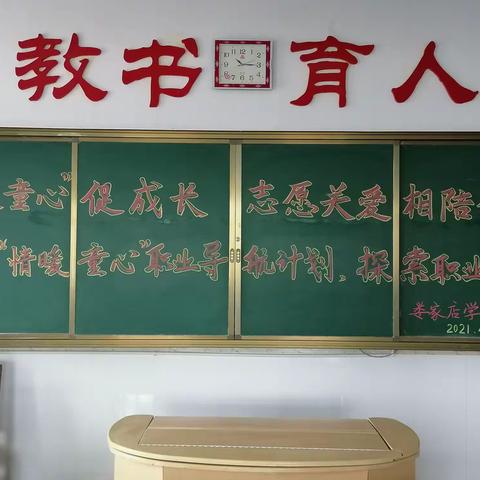 教书育人
童心”促成长 志愿关爱 相陪
“情暖童心”职业导航计划、探索职业
娄家店学
2021.